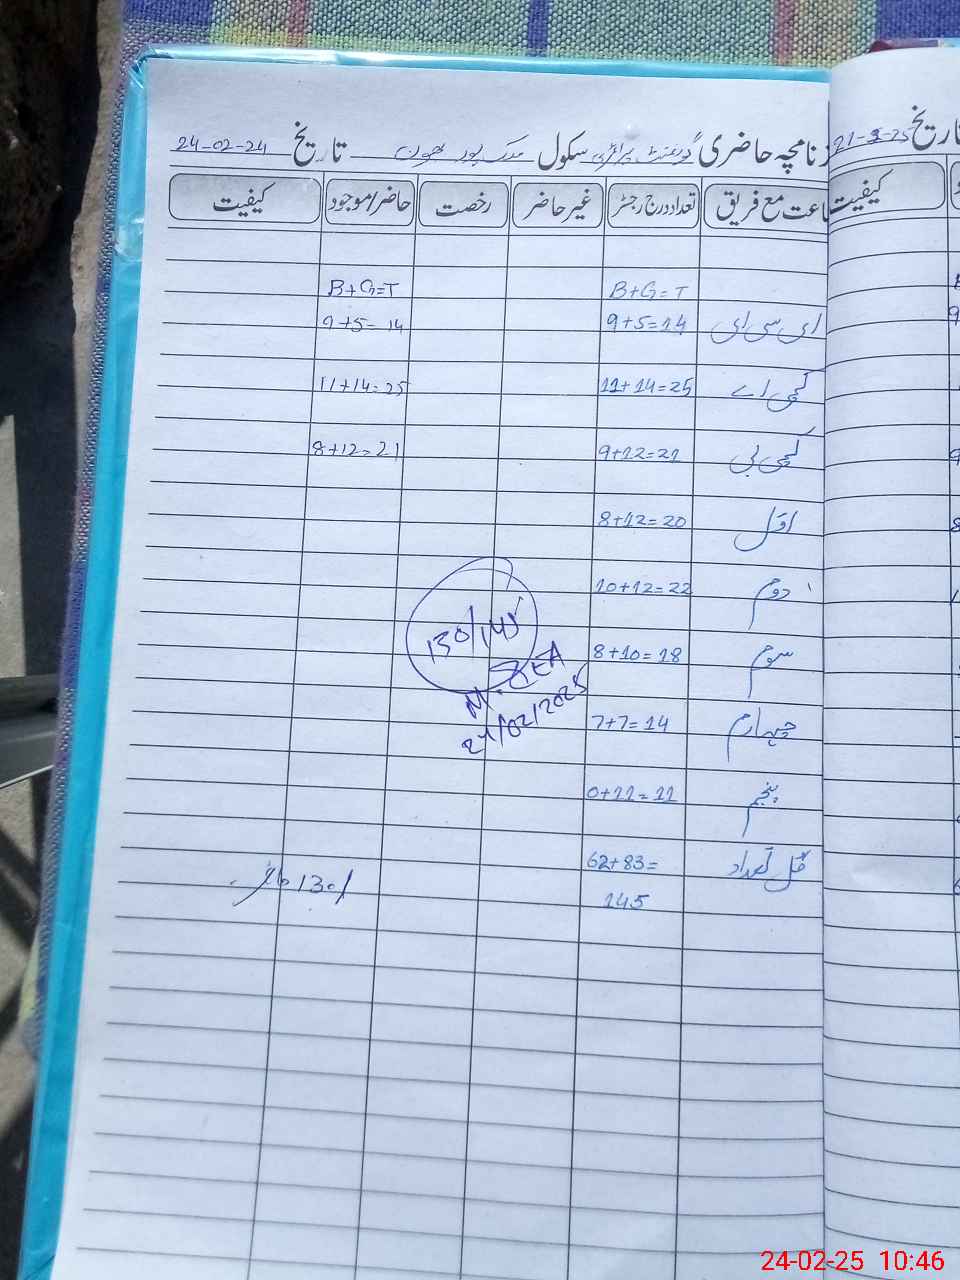 نامچہ حاضری گورنمنٹ پرائمری سکول تاریخ 24-02-24
اعت مع فریق تعداد درج رجسٹر غیر حاضر رخصت حاضر/موجود کیفیت
B+G=T B+G=T
ای سی ای 9+5=14 9+5=14
کچی اے 11+14=25 11+14=25
کچی بی 9+12=21 8+12=21
اول 8+12=20
دوم 10+12=22
سوم 8+10=18
چہارم 7+7=14
پنجم 0+11=11
کل تعداد 62+83=
145
130/145
24/02/2025
130
تاریخ 21-2-25
کیفیت
24-02-25 10:46